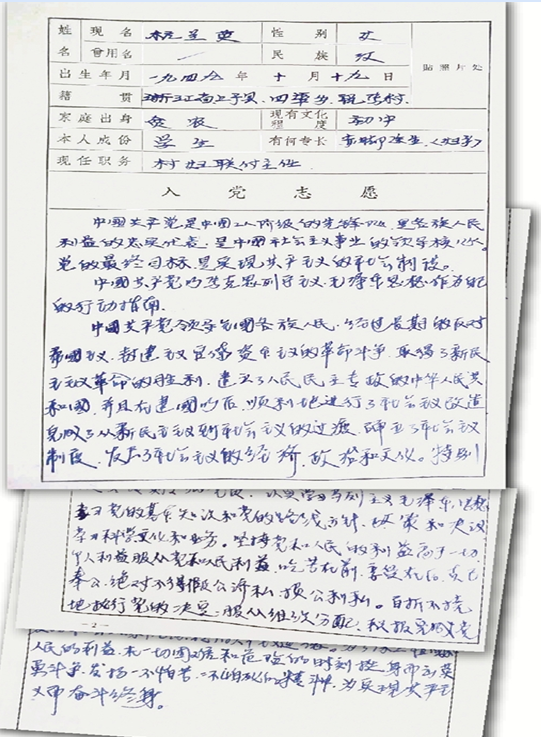 姓 现名 杭兰英 性别 女
名 曾用名 一 民族 汉
贴照片处
出生年月 一九四九年十月十九日
籍贯 浙江省上虞
家庭出身 贫农 现有文化程度 初中
本人成份 学生 有何专长 赤脚医生
现任职务 村妇联付主任
入党志愿
中國共产党是中國工人阶级的先锋队，是各族人民
利益的忠实代表，是中國社会主义事业的领导核心。
党的最终目标，是实现共产主义的社会制度。
中國共产党以马克思列宁主义、毛泽东思想作为自己
的行动指南。
中國共产党领导全國各族人民，经过长期的反对
帝國主义、封建主义、官僚资本主义的革命斗争，取得了新民
主主义革命的胜利，建立了人民民主专政的中华人民共
和國，并且在建國以后，顺利地进行了社会主义改造，
完成了从新民主主义到社会主义的过渡，确立了社会主义
制度，发展了社会主义的经济、政治和文化。特别
认真学习马列主义毛泽东思想
学习党的基本知识和党的路线、方针、政策和决议
学习科学文化和业务。坚持党和人民的利益高于一切，
个人利益服从党和人民利益，吃苦在前，享受在后，克己
奉公，绝对不得假公济私，损公利私。百折不挠
地执行党的决定，服从组织分配，积极完成党
人民的利益，在一切困难和危险的时刻挺身而出，英
勇斗争，发扬一不怕苦、二不怕死的精神，为实现共产主
义而奋斗终身。